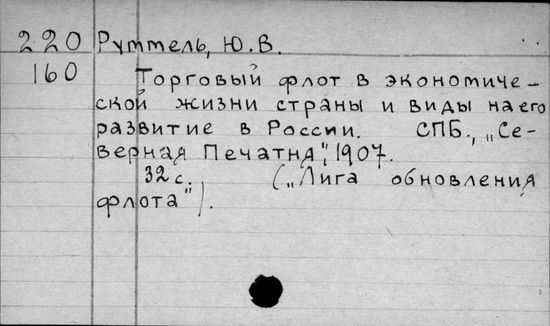 220 Руммель, Ю.В.
160 Торговый флот в экономиче-
ской жизни страны и виды на его
развитие в России. СПБ., „Се-
верная Печатня", 1907.
32 с. („Лига обновления
флота").